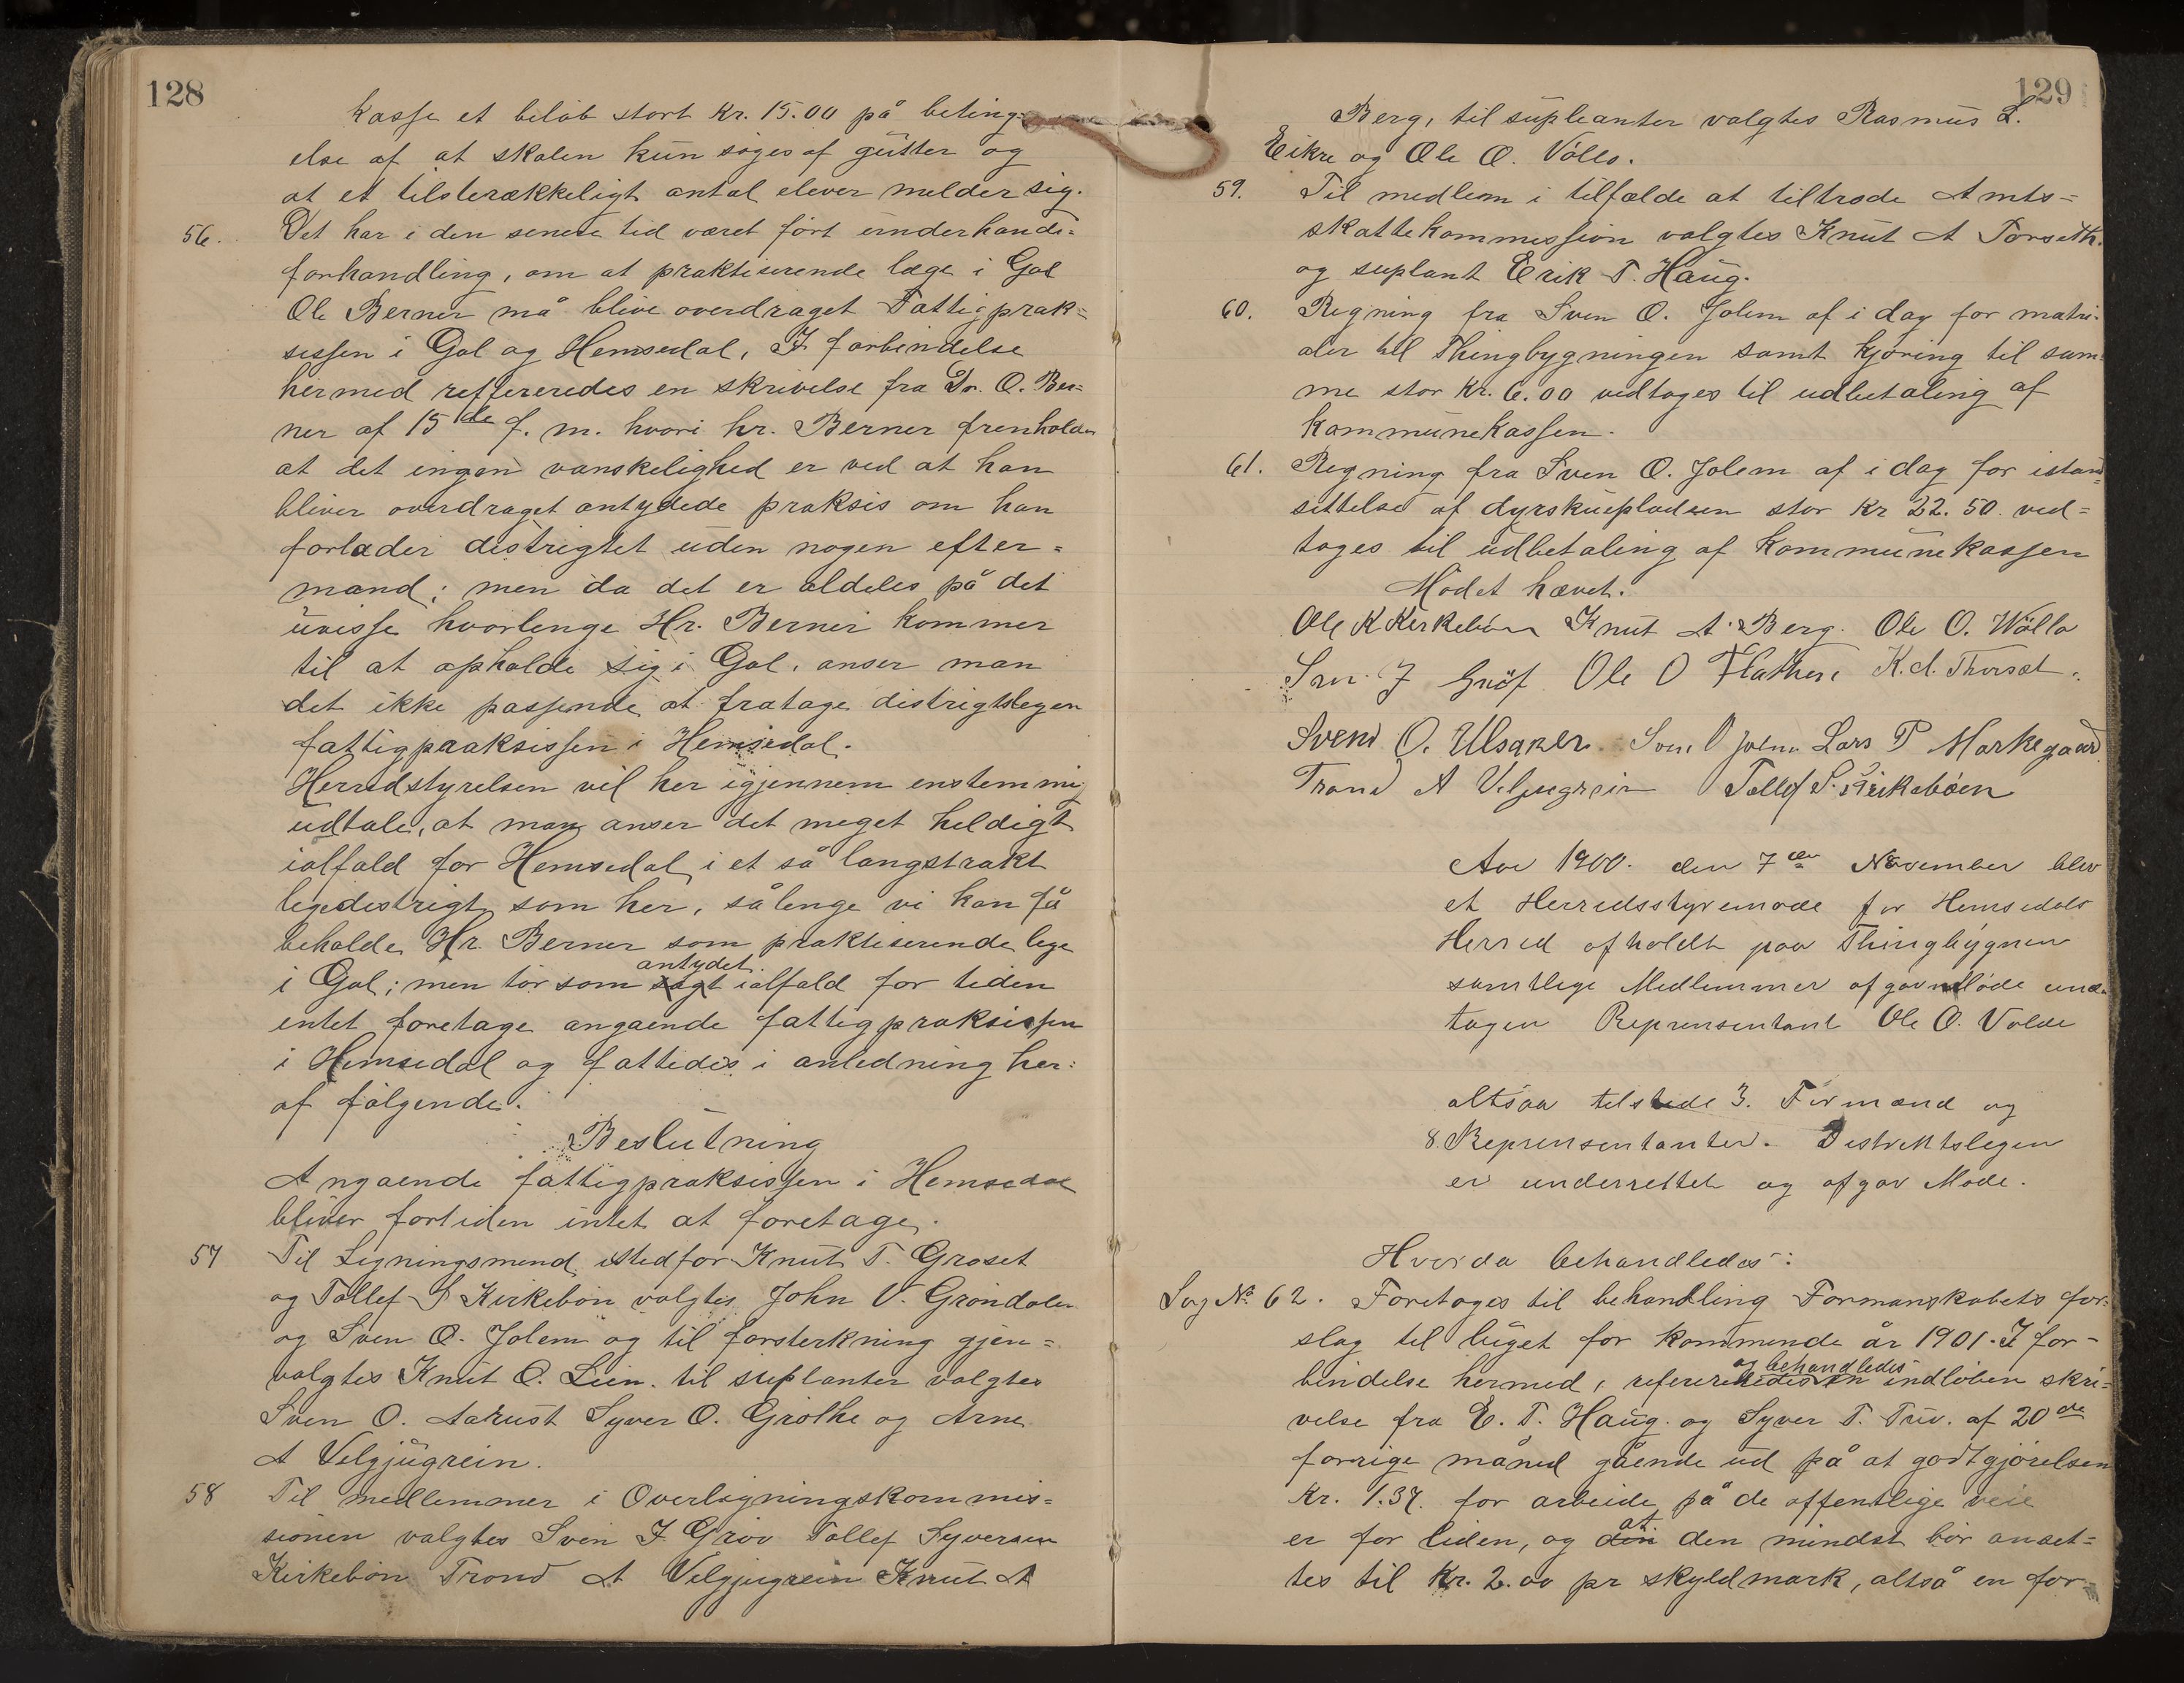 128
kasse et beløb stort kr. 15.00 på beting-
else af at skolen kun søges af gutter og
at et tilstrækkeligt antal elever melder sig.
56. Det har i den senere tid været ført underhånds=
forhandling, om at praktiserende læge i Gol
Ole Berner må blive overdraget Fattigprak=
sissen i Gol og Hemsedal, I forbindelse
hermed reffereredes en skrivelse fra Dr. O. Ber=
ner af 15de f. m. hvori hr. Berner fremholder
at det ingen vanskelighed er ved at han
bliver overdraget antydede praksis om han
forlader distrigtet uden nogen efter=
mand; men da det er aldeles på det
uvisse hvorlenge Hr. Berner kommer
til at opholde sig i Gol, anser man
det ikke passende at fratage distrigtslegen
fattigpraaksissen i Hemsedal.
Herredstyrelsen vil her igjennem enstemmig
udtale, at man anser det meget heldigt
ialfald for Hemsedal i et så langstrakt
legedestrigt som her, sålenge vi kan få
beholde Hr. Berner som praktiserende lege
antydet
i Gol; men tør som sagt ialfald for tiden
entet foretage angaende fattigpraksissen
i Hemsedal og fattedes i anledning her=
af følgende.
Beslutning
Angaende fattigpraksissen i Hemsedal
bliver fortiden intet at foretage.
57 Til Ligningsmend istedfor Knut T. Grøset
og Tollef S Kirkebøn valgtes John V. Grøndalen
og Sven O. Jolem og til forsterkning gjen=
valgtes Knut O. Lien. til suplanter valgtes
Sven O. Aakust Syver O. Grøthe og Arne
A Velgjugrein.
58 Til medlemmer i Overligningskommis=
sionen valgtes Sven J. Grøv Tollef Syversen
Kirkebøn Trond A Velgjugrein Knut A
129
Berg, til supleanter valgtes Rasmus L.
Eikre og Ole O. Vøllo.
59. Til medlem i tilfælde at tiltræde Amts=
skattekommission valgtes Knut A Torseth.
og suplant Erik T. Haug.
60. Regning fra Sven O. Jolem af i dag for matri-
aler til Thingbygningen samt kjøring til sam-
me stor kr. 6.00 vedtoges til udbetaling af
kommunekassen.
61. Regning fra Sven O. Jolem af i dag for istand=
settelse af dyrskuepladsen stor kr 22.50 ved=
toges til udbetaling af kommunekassen
Mødet hævet.
Ole K Kirkebøn Knut A. Berg. Ole O. Wøllo
Sven J Grøf Ole O Flathen K. A. Thorset.
Svend O. Ulsaker Sven O Jolm Lars P Markegaard
Trond A Veljugrein Tollef S. Kirkebøen
Aar 1900. den 7de November blev
et Herredsstyremøde for Hemsedals
Herred afholdt paa Thingbygnen
samtlige Medlemmer afgav Møde und-
tagen Reprensentant Ole O. Volde
altsaa telstede 3. Formænd og
8 Reprensentanter. Distriktslegen
er underrettet og afgav Møde.
Hvorda behandledes:
Sag No. 62. Foretoges til behandling Formanskabets for=
slag til buget for kommende år 1901. I for-
og behandledes
bindelse hermed, refereredes en indløben skri=
velse fra E. T. Haug og Syver T. Tuv. af 20de
forrige måned gående ud på at godtgjørelsen
kr. 1.37. for arbeide på de offentlige veie
at
er for liden, og den den mindst bør anset=
tes til kr. 2.00 pr skyldmark, altså en for-